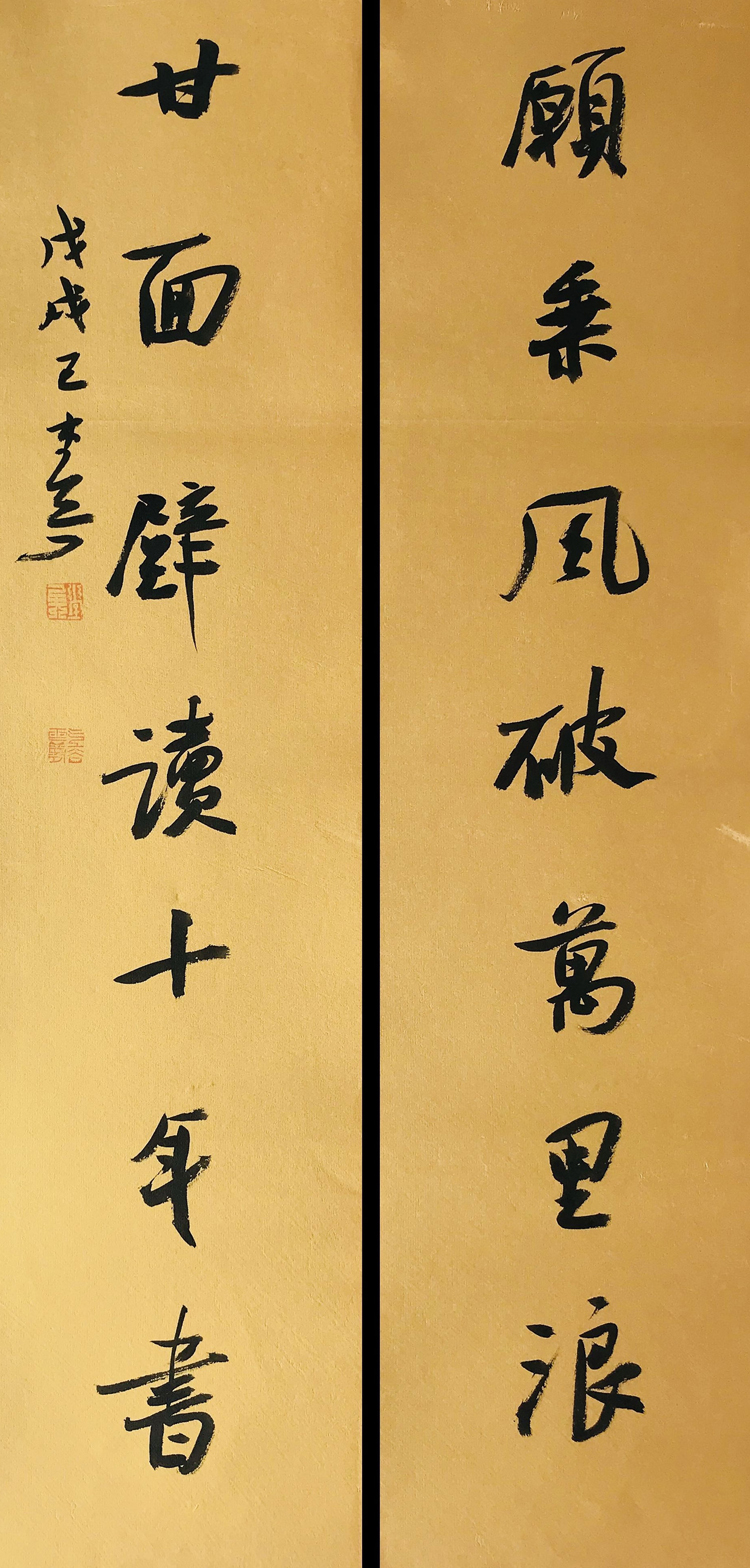 願乘風破萬里浪
甘面壁讀十年書
戊戌